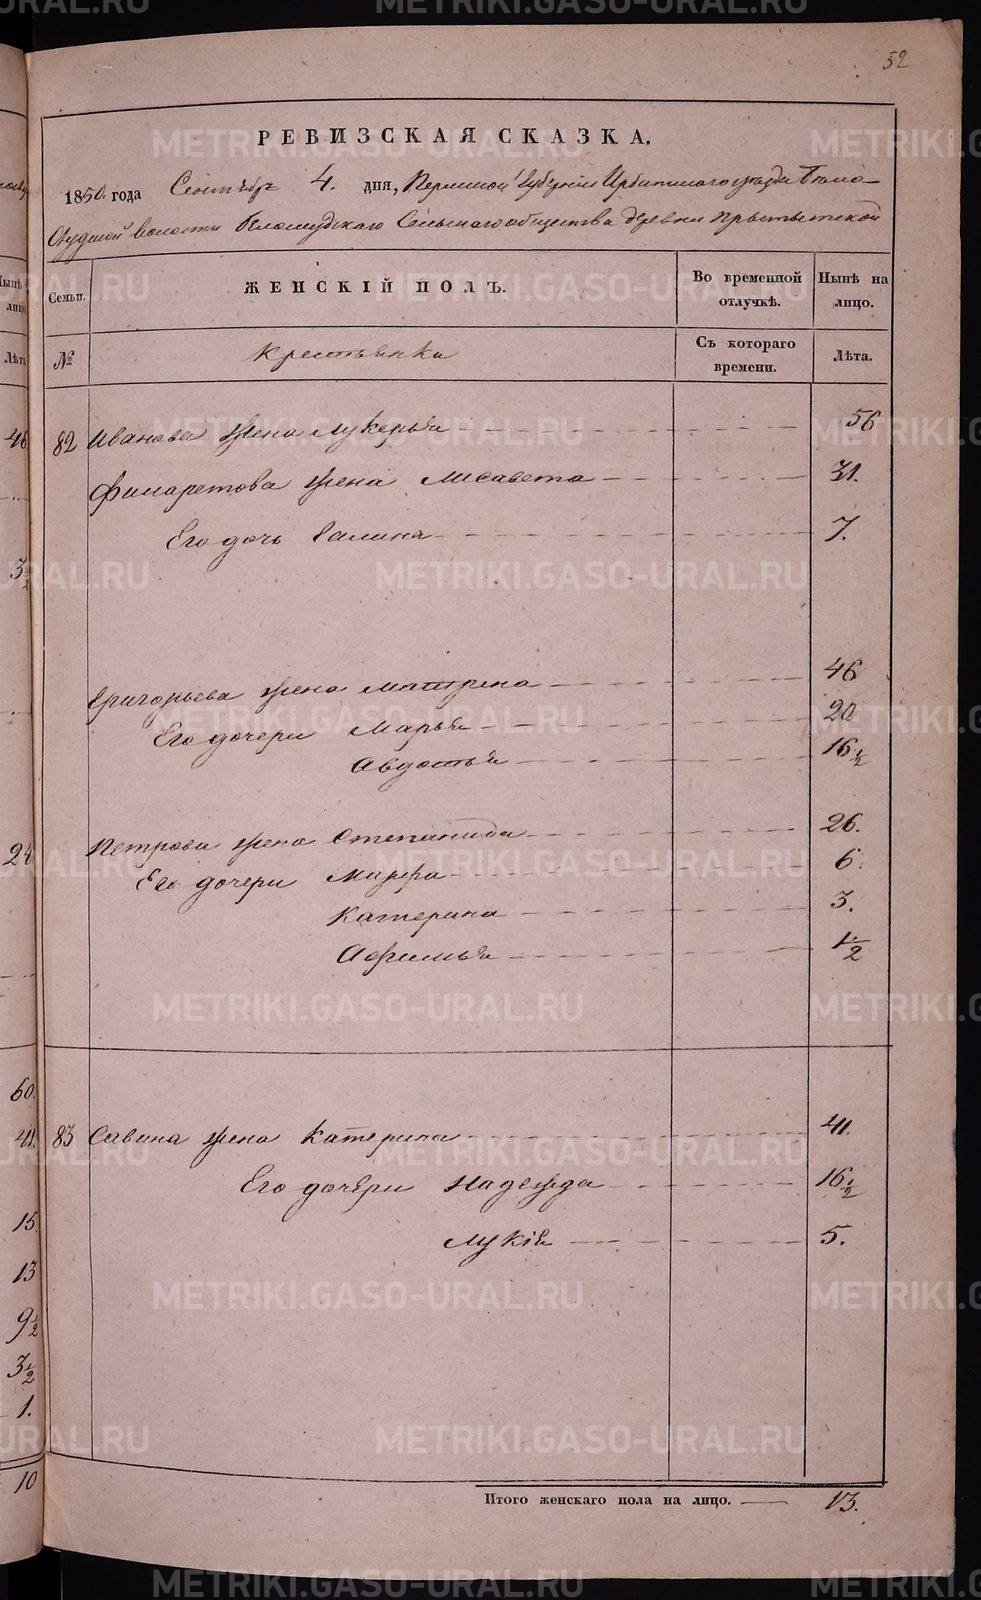 52
РЕВИЗСКАЯ СКАЗКА.
1850. года Сентября 4. дня, Пермской Губернии Ирбитскаго уезда Бело-
слудской волости Белослудскаго Сельскаго общества деревни
Семьи. ЖЕНСКІЙ ПОЛЪ. Во временной отлучкѣ. Нынѣ на лицо.
№ Крестьянки Съ котораго времени. Лѣта.
82 Иванова жена Лукерья 56
Филаретова жена Лисавета 31.
Его дочь Галина 7.
Григорьева жена Матрена 46
Его дочери Марья 20
Авдотья 16 1/2
Петрова жена Степанида 26.
Его дочери Марфа 6.
Катерина 3.
Афимья 1/2
83 Савина жена Катерина 41.
Его дочери Надежда 16 1/2
Лукія 5.
Итого женскаго пола на лицо. 13.
Нынѣ
лицо
Лѣта
46
3 1/2
24
60.
41.
15
13
9 1/2
3 1/2
1.
10
METRIKI.GASO-URAL.RU